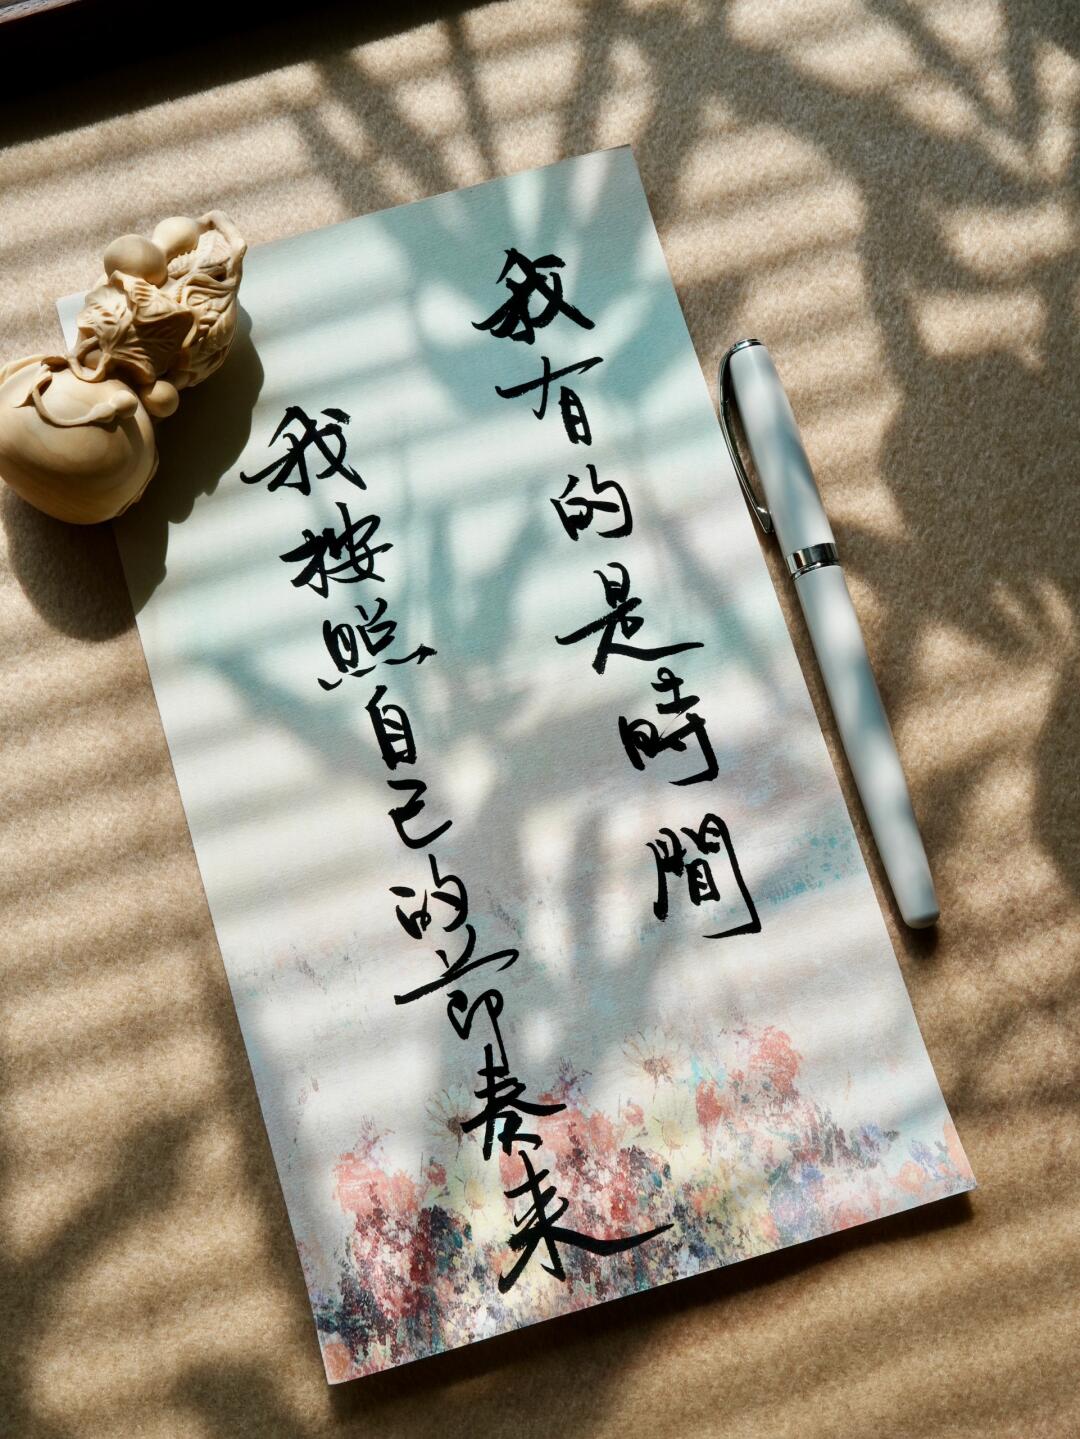 我有的是時間
我按照自己的節奏来